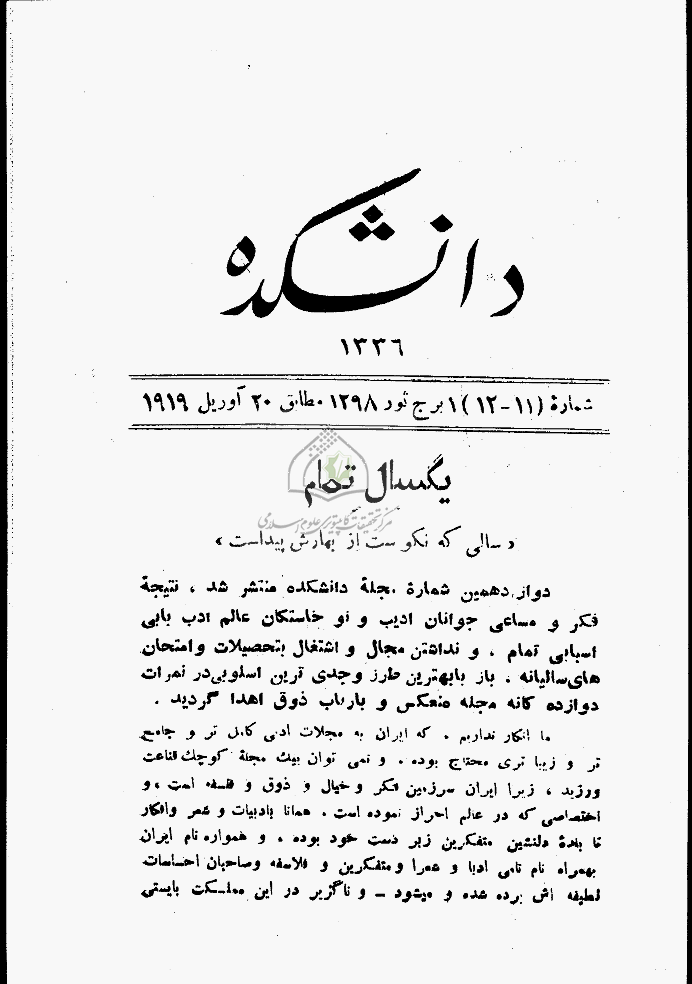 دانشکده
۱۳۳۶
شمارهٔ (۱۱-۱۲) ۱ برج ثور ۱۲۹۸ مطابق ۲۰ آوریل ۱۹۱۹
یکسال تمام
مرکز تحقیقات کامپیوتری علوم اسلامی
« سالی که نکوست از بهارش پیداست »
دوازدهمین شمارهٔ مجلهٔ دانشکده منتشر شد ، نتیجهٔ
فکر و مساعی جوانان ادیب و نو خاستکان عالم ادب بابی
اسبابی تمام ، و نداشتن مجال و اشتغال بتحصیلات و امتحان
های سالیانه ، باز بابهترین طرز وجدی ترین اسلوبی در نمرات
دوازده کانه مجله منعکس و بارباب ذوق اهدا گردید .
ما انکار نداریم . که ایران به مجلات ادبی کامل تر و جامع
تر و زیبا تری محتاج بوده . و نمی توان بیك مجلهٔ کوچك قناعت
ورزید ، زیرا ایران سرزمین فکر و خیال و ذوق و فلسفه است ، و
اختصاصی که در عالم احراز نموده است . همانا بادبیات و شعر وافکار
تابندهٔ دلنشین متفکرین زبر دست خود بوده ، و همواره نام ایران
بهمراه نام نامی ادبا و شعرا و متفکرین و فلاسفه وصاحبان احساسات
لطیفه اش برده شده و میشود ــ و ناگزیر در این مملکت بایستی